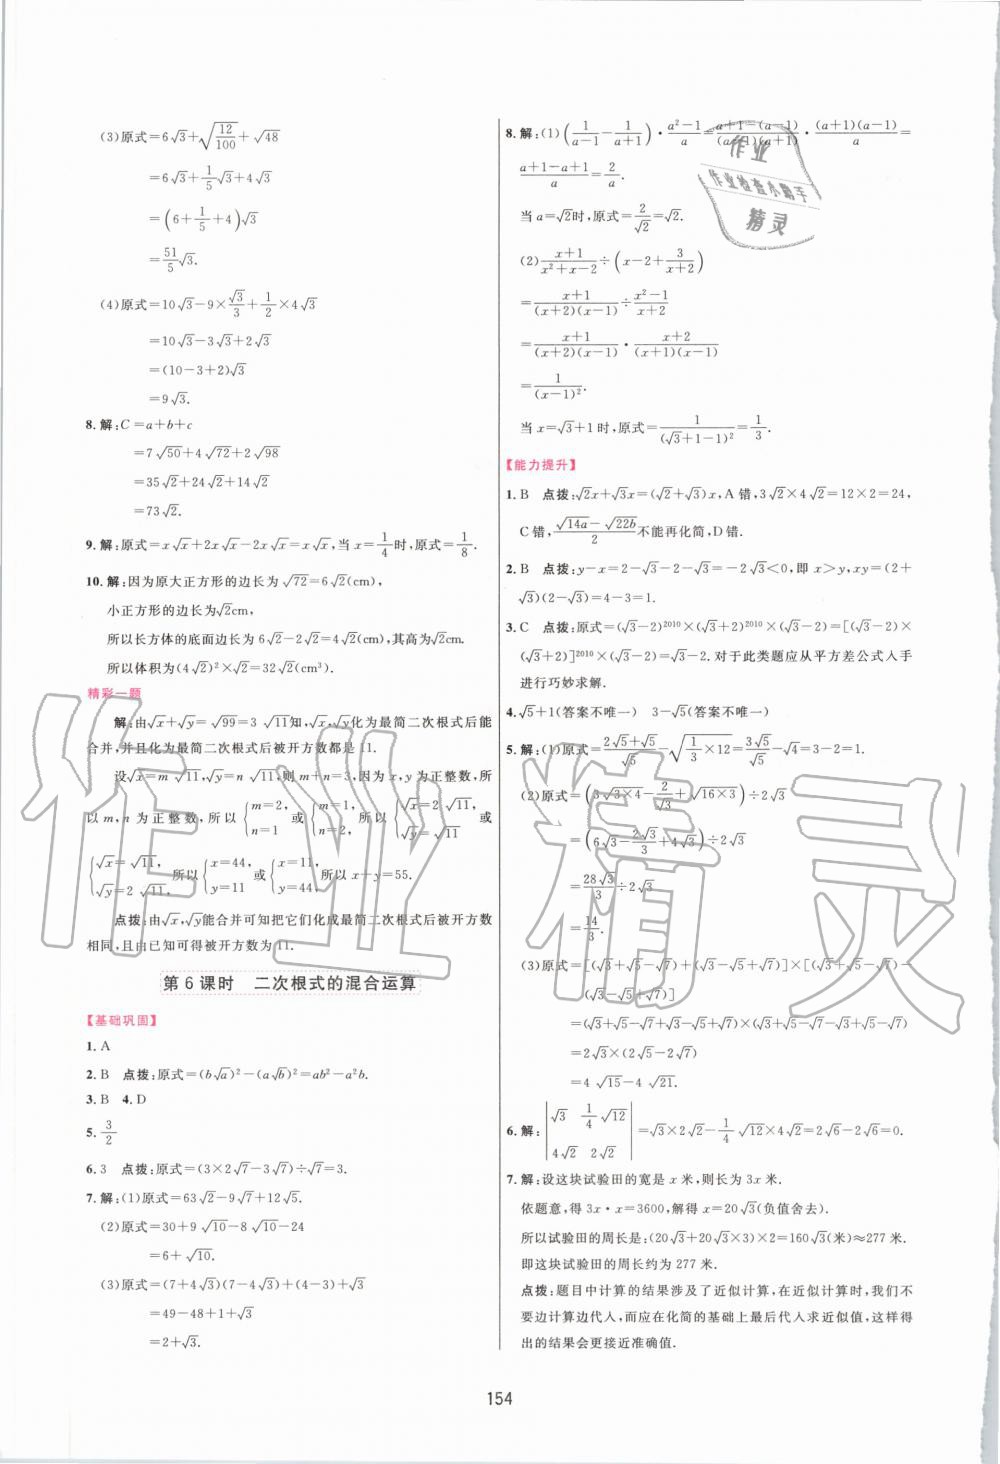 (3)原式=6√3+√(12/100)+√48
=6√3+1/5√3+4√3
=(6+1/5+4)√3
=51/5√3.
(4)原式=10√3-9×√3/3+1/2×4√3
=10√3-3√3+2√3
=(10-3+2)√3
=9√3.
8.解:C=a+b+c
=7√50+4√72+2√98
=35√2+24√2+14√2
=73√2.
9.解:原式=x√x+2x√x-2x√x=x√x,当x=1/4时,原式=1/8.
10.解:因为原大正方形的边长为√72=6√2(cm),
小正方形的边长为√2cm,
所以长方体的底面边长为6√2-2√2=4√2(cm),其高为√2cm.
所以体积为(4√2)²×√2=32√2(cm³).
精彩一题
解:由√x+√y=√99=3√11知,√x,√y化为最简二次根式后能
合并,并且化为最简二次根式后被开方数都是11.
设√x=m√11,√y=n√11,则m+n=3,因为x,y为正整数,所
以m,n为正整数,所以{m=2, n=1 或{m=1, n=2, 所以{√x=2√11, √y=√11 或
{√x=√11, √y=2√11, 所以{x=44, y=11 或{x=11, y=44, 所以x+y=55.
点拨:由√x,√y能合并可知把它们化成最简二次根式后被开方数
相同,且由已知可得被开方数为11.
第6课时 二次根式的混合运算
【基础巩固】
1.A
2.B 点拨:原式=(b√a)²-(a√b)²=ab²-a²b.
3.B 4.D
5.3/2
6.3 点拨:原式=(3×2√7-3√7)÷√7=3.
7.解:(1)原式=63√2-9√7+12√5.
(2)原式=30+9√10-8√10-24
=6+√10.
(3)原式=(7+4√3)(7-4√3)+(4-3)+√3
=49-48+1+√3
=2+√3.
8.解:(1)(1/(a-1)-1/(a+1))·(a²-1)/a=(a+1-(a-1))/((a-1)(a+1))·((a+1)(a-1))/a=
(a+1-a+1)/a=2/a.
当a=√2时,原式=2/√2=√2.
(2)(x+1)/(x²+x-2)÷(x-2+3/(x+2))
=(x+1)/((x+2)(x-1))÷(x²-1)/(x+2)
=(x+1)/((x+2)(x-1))·(x+2)/((x+1)(x-1))
=1/(x-1)².
当x=√3+1时,原式=1/(√3+1-1)²=1/3.
【能力提升】
1.B 点拨:√2x+√3x=(√2+√3)x,A错,3√2×4√2=12×2=24,
C错,(√14a-√22b)/2不能再化简,D错.
2.B 点拨:y-x=2-√3-2-√3=-2√3<0,即x>y,xy=(2+
√3)(2-√3)=4-3=1.
3.C 点拨:原式=(√3-2)²⁰¹⁰×(√3+2)²⁰¹⁰×(√3-2)=[(√3-2)×
(√3+2)]²⁰¹⁰×(√3-2)=√3-2.对于此类题应从平方差公式入手
进行巧妙求解.
4.√5+1(答案不唯一) 3-√5(答案不唯一)
5.解:(1)原式=(2√5+√5)/√5-√(1/3×12)=3√5/√5-√4=3-2=1.
(2)原式=(3√(3×4)-2/√3+√(16×3))÷2√3
=(6√3-2√3/3+4√3)÷2√3
=28√3/3÷2√3
=14/3.
(3)原式=[(√3+√5-√7)+(√3-√5+√7)]×[(√3+√5-√7)-
(√3-√5+√7)]
=(√3+√5-√7+√3-√5+√7)×(√3+√5-√7-√3+√5-√7)
=2√3×(2√5-2√7)
=4√15-4√21.
6.解:|√3 1/4√12; 4√2 2√2|=√3×2√2-1/4√12×4√2=2√6-2√6=0.
7.解:设这块试验田的宽是x米,则长为3x米.
依题意,得3x·x=3600,解得x=20√3(负值舍去).
所以试验田的周长是:(20√3+20√3×3)×2=160√3(米)≈277米.
即这块试验田的周长约为277米.
点拨:题目中计算的结果涉及了近似计算,在近似计算时,我们不
要边计算边代人,而应在化简的基础上最后代人近似值,这样得
出的结果会更接近准确值.
154
作业
作业检查小助手
精灵
作业精灵